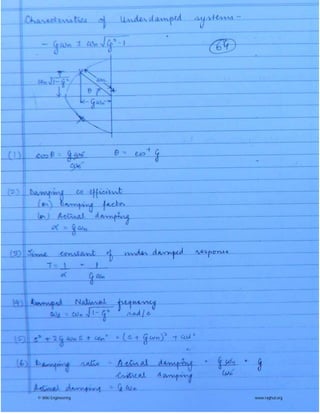 Characteristics of Underdamped systems -
64
- ξωn ± ωn √ξ²-1
ωn√1-ξ²
ωn
θ
-ξωn
(1) cosθ = ξωn / ωn θ = cos⁻¹ ξ
(2) Damping co efficient
(or) Damping factor
(or) Actual damping
α = ξωn
(3) Time constant of under damped response
T = 1/α = 1/ξωn
(4) Damped Natural frequency
ωd = ωn √1-ξ² rad/s
(5) s² + 2ξωns + ωn² = (s + ξωn)² + ωd²
(6) Damping ratio = Actual damping / Critical damping = ξωn / ωn = ξ
Actual damping = ξωn
© Wiki Engineering www.raghul.org